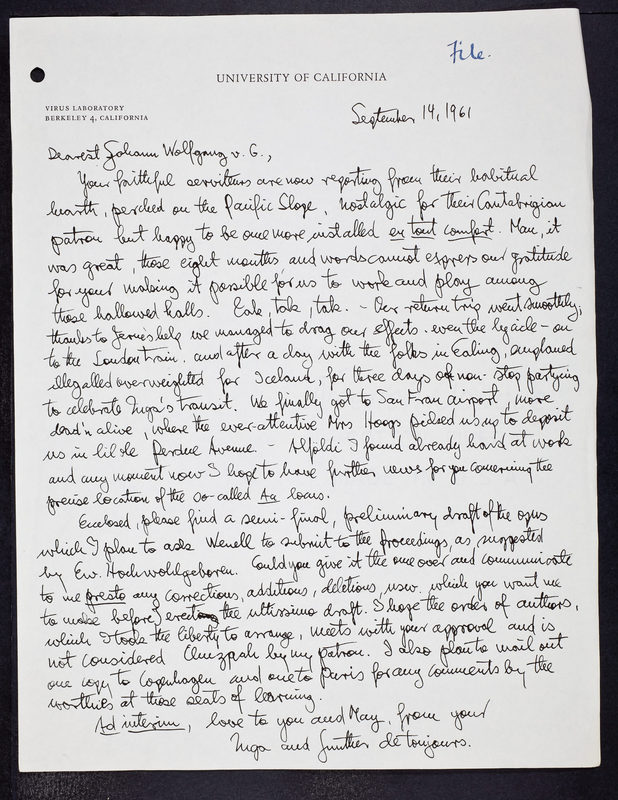 File.
UNIVERSITY OF CALIFORNIA
VIRUS LABORATORY
BERKELEY 4, CALIFORNIA
September 14, 1961
Dearest Johann Wolfgang v. G.,
Your faithful serviteurs are now reporting from their habitual
hearth, perched on the Pacific Slope, nostalgic for their Cantabrigian
patron but happy to be once more installed en tout comfort. Man, it
was great, those eight months and words cannot express our gratitude
for your making it possible for us to work and play among
those hallowed halls. Tak, tak, tak. - Our return trip went smoothly;
thanks to help we managed to drag our effects - even the bycicle - on
to the London train, and after a day with the folks in Ealing, enplaned
illegalled overweighted for Iceland, for three days of non-stop partying
to celebrate Inga's transit. We finally got to San Fran airport, more
dead'n alive, where the ever-attentive Mrs Hoogs picked us up to deposit
us in lil ole Perdue Avenue. - Alfoldi I found already hard at work
and any moment now I hope to have further news for you concerning the
precise location of the so-called Au locus.
Enclosed, please find a semi-final, preliminary draft of the opus
which I plan to ask Wendell to submit to the Proceedings, as suggested
by Ew. Hochwohlgeboren. Could you give it the once over and communicate
to me presto any corrections, additions, deletions, usw. which you want me
to make before I erect the ultissimo draft. I hope the order of authors,
which I took the liberty to arrange, meets with your approval and is
not considered Chuzpah by my patron. I also plan to mail out
one copy to Copenhagen and one to Paris for any comments by the
worthies at those seats of learning.
Ad interim, love to you and May, from your
Inga and Gunther de toujours.